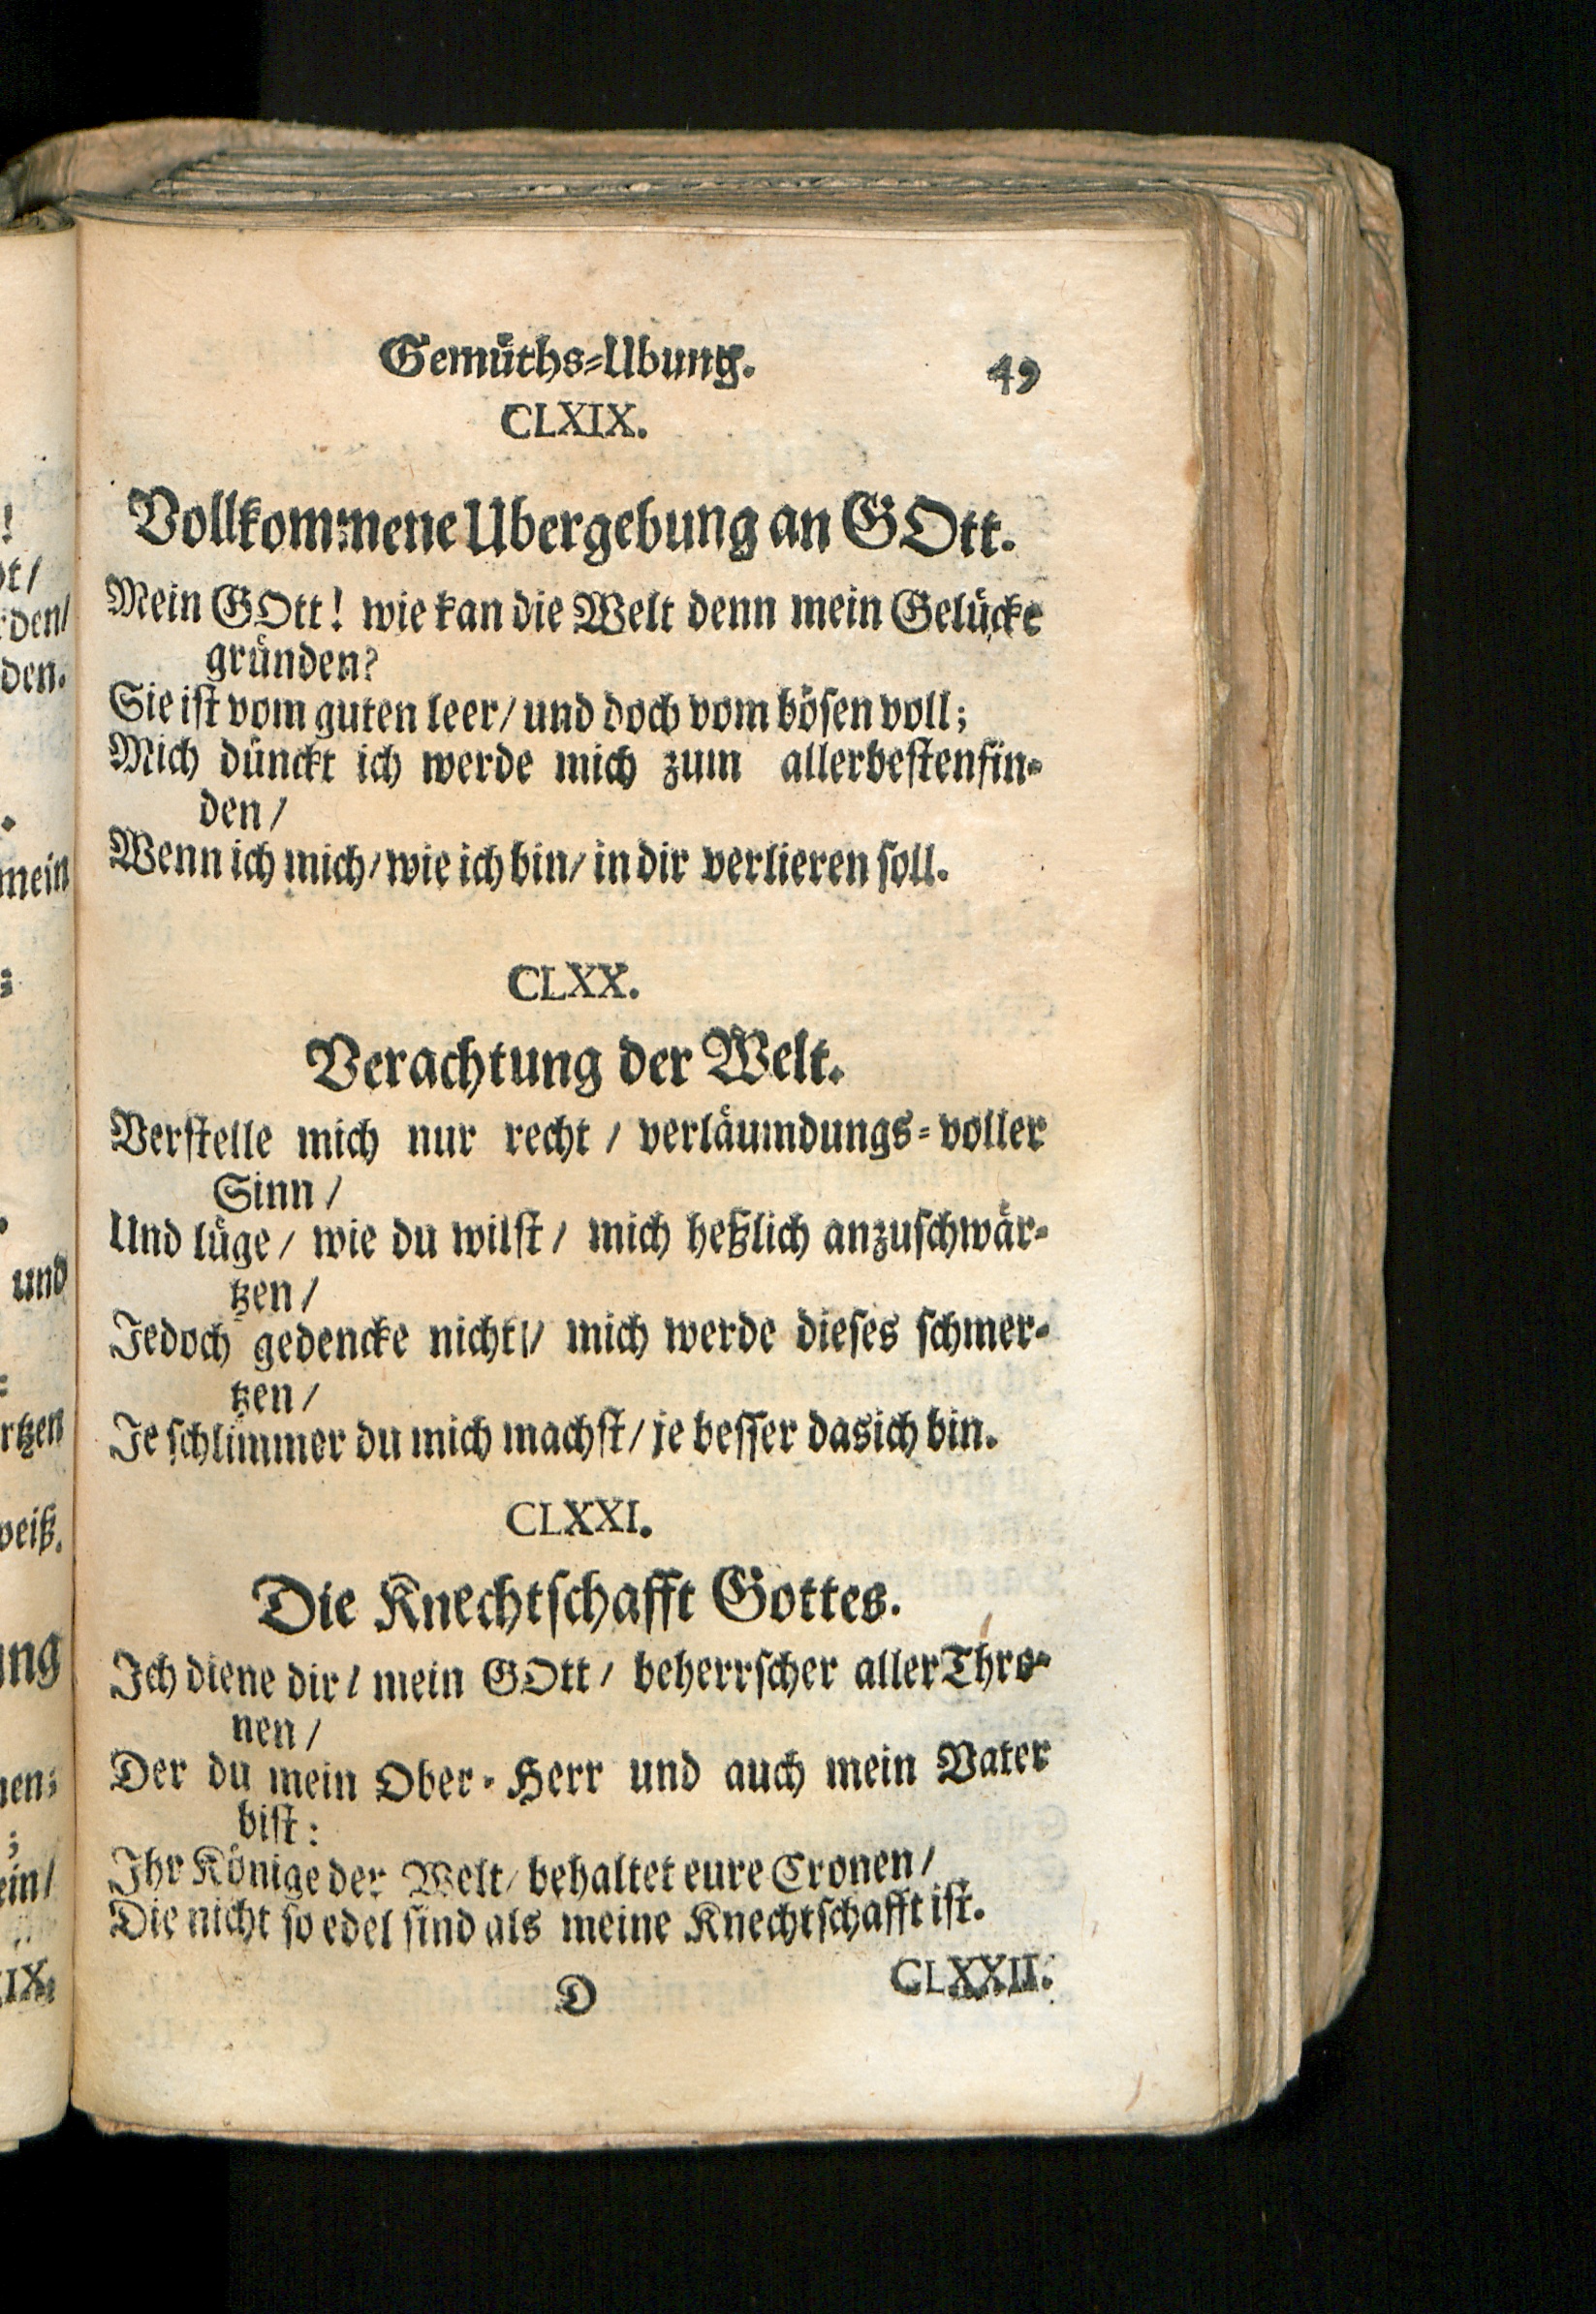 Gemüths-Ubung. 49
CLXIX.
Vollkommene Ubergebung an GOtt.
Mein GOtt! wie kan die Welt denn mein Gelücke
gründen?
Sie ist vom guten leer/ und doch vom bösen voll;
Mich dünckt ich werde mich zum allerbesten fin-
den/
Wenn ich mich/ wie ich bin/ in dir verlieren soll.
CLXX.
Verachtung der Welt.
Verstelle mich nur recht / verläumdungs-voller
Sinn /
Und lüge / wie du wilst / mich heßlich anzuschwär-
tzen /
Jedoch gedencke nicht / mich werde dieses schmer-
tzen /
Je schlimmer du mich machst / je besser das ich bin.
CLXXI.
Die Knechtschafft Gottes.
Jch diene dir / mein GOtt / beherrscher aller Thro-
nen /
Der du mein Ober-Herr und auch mein Vater
bist:
Jhr Könige der Welt / behaltet eure Cronen /
Die nicht so edel sind als meine Knechtschafft ist.
D CLXXII.